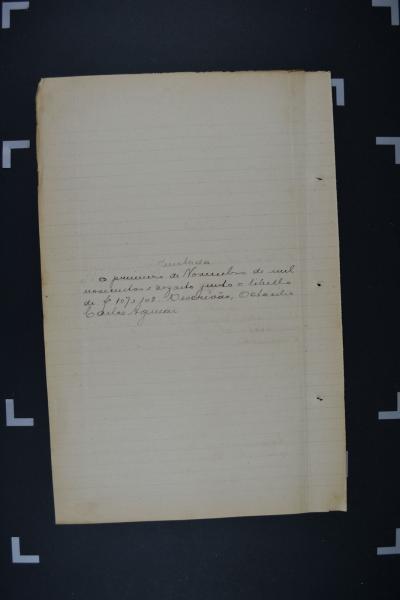 Juntada
O primeiro de Novembro de mil
novecentos e dezoito junto o libello
de f 107 e 108. O escrivão, Octavio
Carlos Aguiar